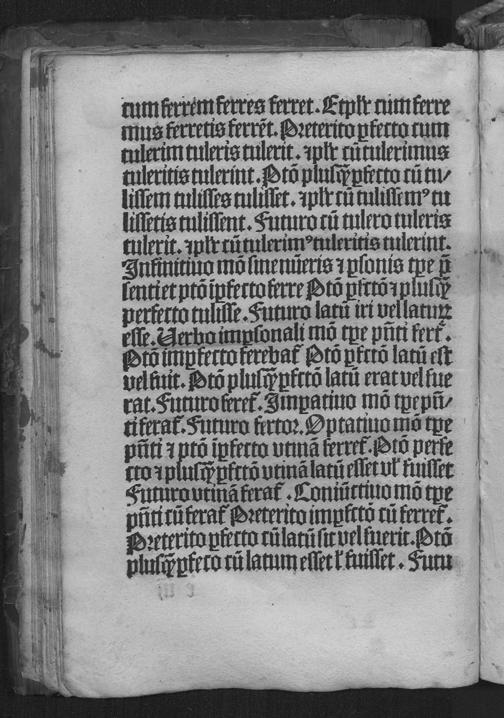 cum ferrem ferres ferret. Etplr̄ cum ferre
mus ferretis ferrēt. Preterito ꝑfecto cum
tulerim tuleris tulerit. ⁊plr̄ cū tulerimus
tuleritis tulerint. Ptō plusqꝫ̄ ꝑfecto cū tu⸗
lissem tulisses tulisset. ⁊plr̄ cū tulissemꝰ tu
lissetis tulissent. Futuro cū tulero tuleris
tulerit. ⁊plr̄ cū tulerimꝰ tuleritis tulerint.
Infinitiuo mō sine nūeris ⁊ ꝑsonis tꝑe p̄
senti et ptō īꝑfecto ferre Ptō ꝑfctō ⁊ plusqꝫ̄
perfecto tulisse. Futuro latū iri vel laturꝝ
esse. Uerbo imꝑsonali mō tꝑe pn̄ti fert᷑.
Ptō imꝑfecto ferebat᷑ Ptō ꝑfctō latū est
vel fuit. Ptō plusqꝫ̄ ꝑfctō latū erat vel fue
rat. Futuro feret᷑. Imꝑatiuo mō tꝑe pn̄⸗
ti ferat᷑. Futuro fertor. Optatiuo mō tꝑe
pn̄ti ⁊ ptō īꝑfecto vtinā ferret᷑. Ptō perfe
cto ⁊ plusqꝫ̄ ꝑfctō vtinā latū esset vl̓ fuisset
Futuro vtinā ferat᷑. Coniūctiuo mō tꝑe
pn̄ti cū ferat᷑ Preterito imꝑfctō cū ferret᷑.
Preterito ꝑfecto cū latū sit vel fuerit. Ptō
plusqꝫ̄ ꝑfecto cū latum esset l̓ fuisset. Futu